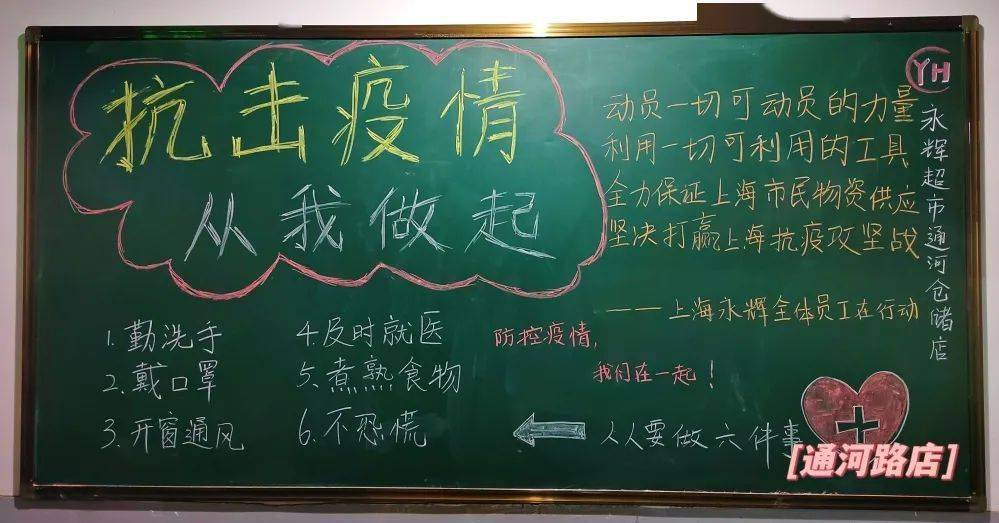 抗击疫情
从我做起
动员一切可动员的力量
利用一切可利用的工具
全力保证上海市民物资供应
坚决打赢上海抗疫攻坚战
——上海永辉全体员工在行动
YH
永辉超市通河仓储店
1.勤洗手
2.戴口罩
3.开窗通风
4.及时就医
5.煮熟食物
6.不恐慌
防控疫情,
我们在一起!
人人要做六件事
[通河路店]